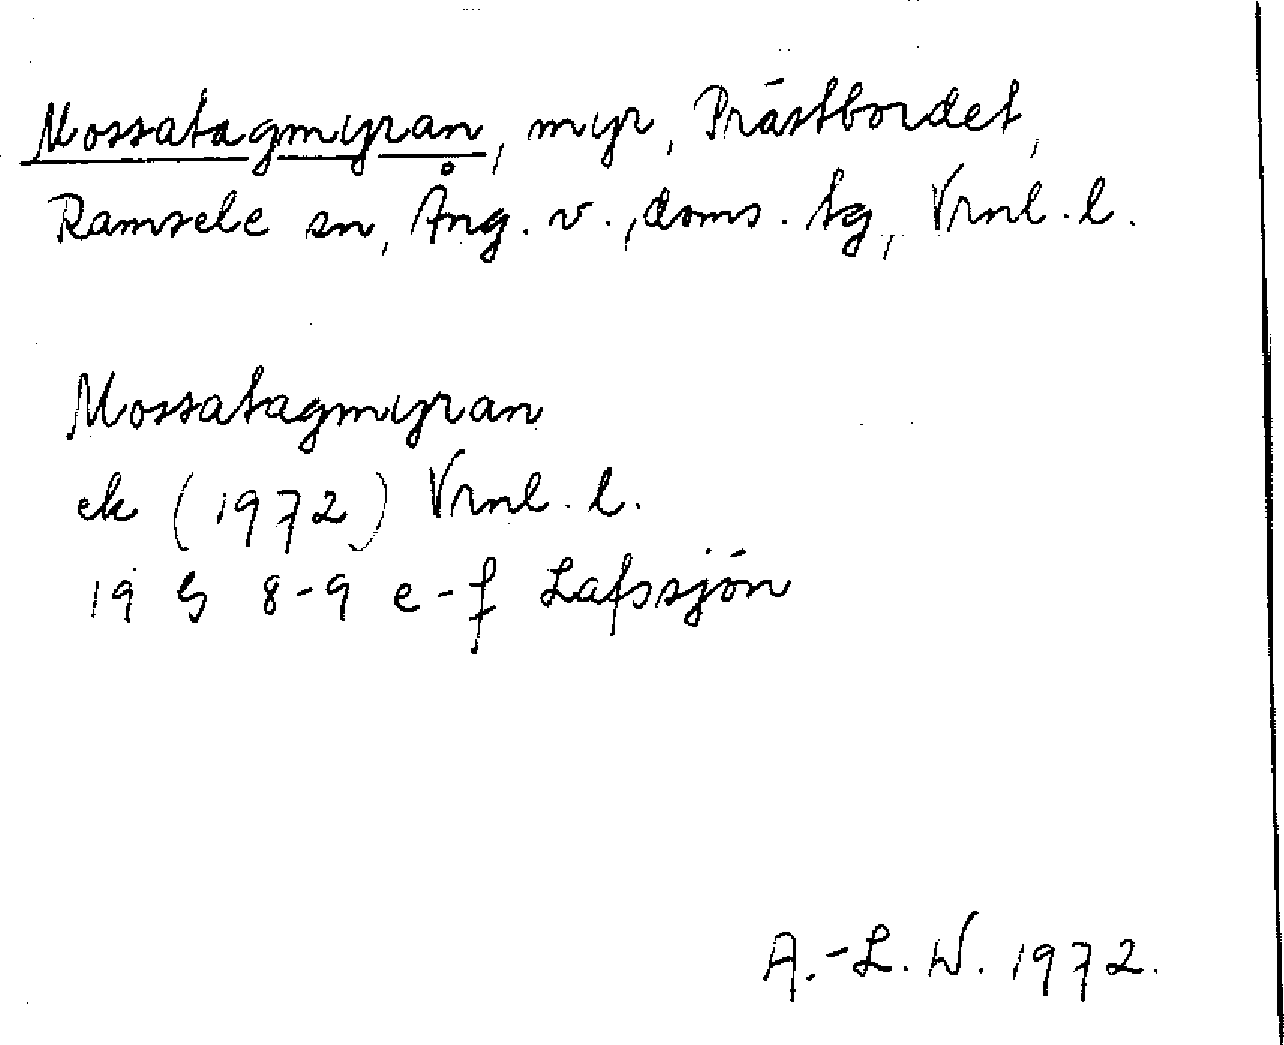 Mossatagmyran, myr, Prästbordet,
Ramsele sn, Ång. v., doms. tg, Vrnl. l.
Mossatagmyran
ek (1972) Vrnl. l.
19 G 8-9 e-f Lafssjön
A.-L. W. 1972.